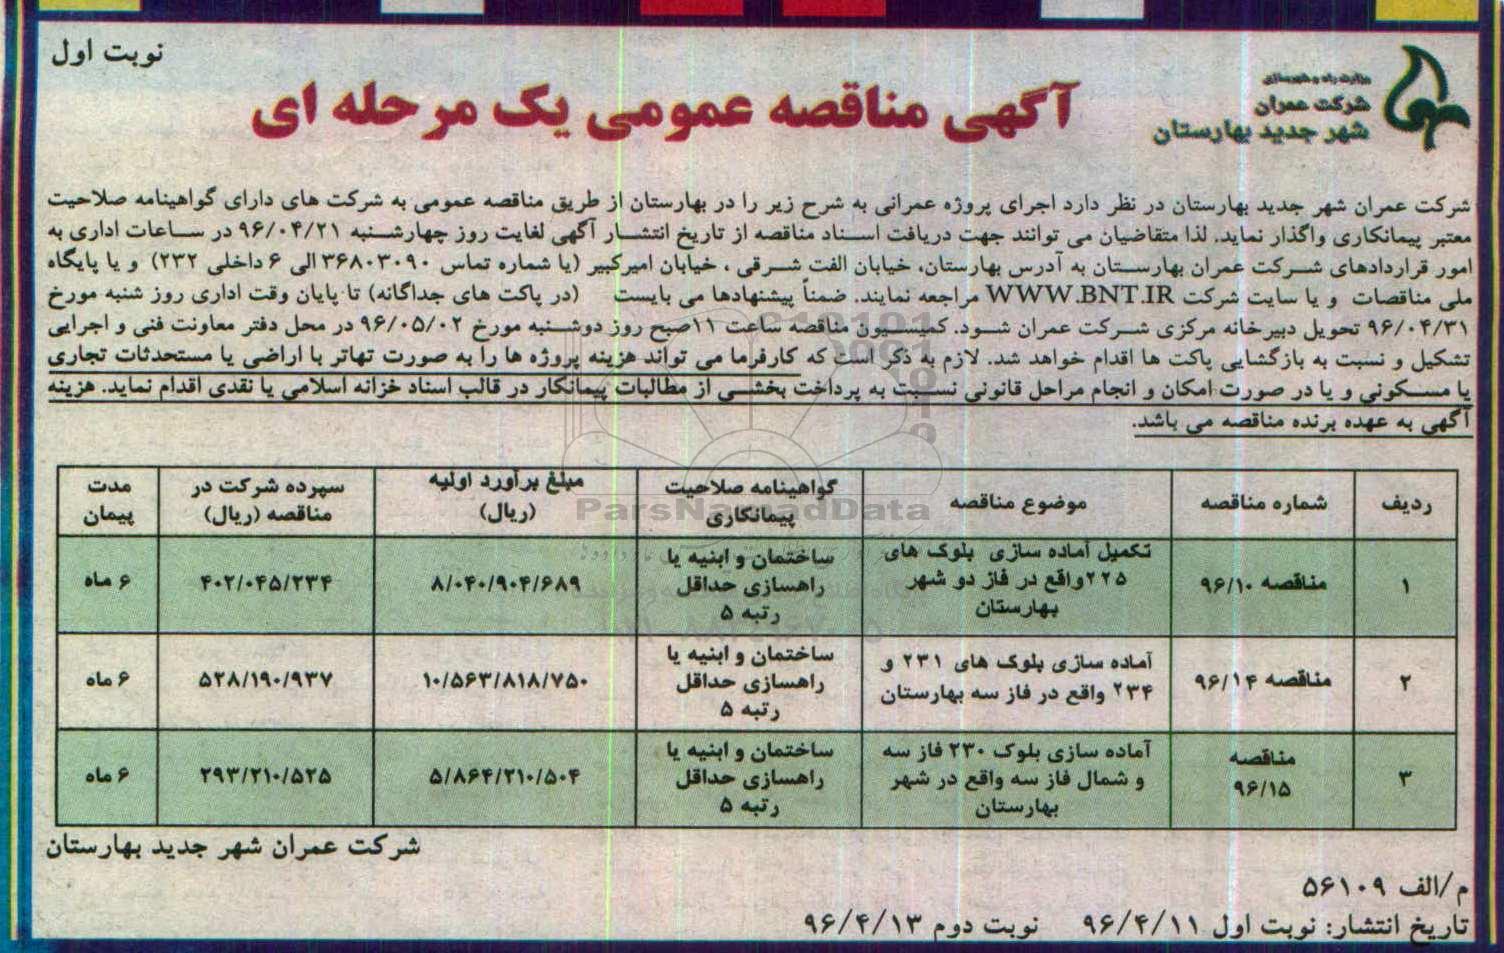 نوبت اول
وزارت راه و شهرسازی
شرکت عمران
شهر جدید بهارستان
آگهی مناقصه عمومی یک مرحله ای
شرکت عمران شهر جدید بهارستان در نظر دارد اجرای پروژه عمرانی به شرح زیر را در بهارستان از طریق مناقصه عمومی به شرکت های دارای گواهینامه صلاحیت
معتبر پیمانکاری واگذار نماید. لذا متقاضیان می توانند جهت دریافت اسناد مناقصه از تاریخ انتشار آگهی لغایت روز چهارشنبه ۹۶/۰۴/۲۱ در ساعات اداری به
امور قراردادهای شرکت عمران بهارستان به آدرس بهارستان، خیابان الفت شرقی ، خیابان امیرکبیر (یا شماره تماس ۳۶۸۰۳۰۹۰ الی ۶ داخلی ۲۳۲) و یا پایگاه
ملی مناقصات و یا سایت شرکت WWW.BNT.IR مراجعه نمایند. ضمناً پیشنهادها می بایست (در پاکت های جداگانه) تا پایان وقت اداری روز شنبه مورخ
۹۶/۰۴/۳۱ تحویل دبیرخانه مرکزی شرکت عمران شود. کمیسیون مناقصه ساعت ۱۱صبح روز دوشنبه مورخ ۹۶/۰۵/۰۲ در محل دفتر معاونت فنی و اجرایی
تشکیل و نسبت به بازگشایی پاکت ها اقدام خواهد شد. لازم به ذکر است که کارفرما می تواند هزینه پروژه ها را به صورت تهاتر با اراضی یا مستحدثات تجاری
یا مسکونی و یا در صورت امکان و انجام مراحل قانونی نسبت به پرداخت بخشی از مطالبات پیمانکار در قالب اسناد خزانه اسلامی یا نقدی اقدام نماید. هزینه
آگهی به عهده برنده مناقصه می باشد.
ردیف شماره مناقصه موضوع مناقصه گواهینامه صلاحیت پیمانکاری مبلغ برآورد اولیه (ریال) سپرده شرکت در مناقصه (ریال) مدت پیمان
۱ مناقصه ۹۶/۱۰ تکمیل آماده سازی بلوک های ۲۲۵واقع در فاز دو شهر بهارستان ساختمان و ابنیه یا راهسازی حداقل رتبه ۵ ۸/۰۴۰/۹۰۴/۶۸۹ ۴۰۲/۰۴۵/۲۳۴ ۶ ماه
۲ مناقصه ۹۶/۱۴ آماده سازی بلوک های ۲۳۱ و ۲۳۴ واقع در فاز سه بهارستان ساختمان و ابنیه یا راهسازی حداقل رتبه ۵ ۱۰/۵۶۳/۸۱۸/۷۵۰ ۵۲۸/۱۹۰/۹۳۷ ۶ ماه
۳ مناقصه ۹۶/۱۵ آماده سازی بلوک ۲۳۰ فاز سه و شمال فاز سه واقع در شهر بهارستان ساختمان و ابنیه یا راهسازی حداقل رتبه ۵ ۵/۸۶۴/۲۱۰/۵۰۴ ۲۹۳/۲۱۰/۵۲۵ ۶ ماه
ParsNamadData
شرکت عمران شهر جدید بهارستان
م/الف ۵۶۱۰۹
تاریخ انتشار: نوبت اول ۹۶/۴/۱۱ نوبت دوم ۹۶/۴/۱۳